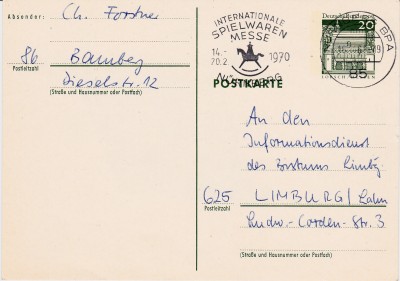 Absender: Ch. Forstner
86 Bamberg
Postleitzahl
Dieselstr. 12
(Straße und Hausnummer oder Postfach)
INTERNATIONALE
SPIELWAREN
MESSE
14.-
20.2. 1970
NÜRNBERG
Deutsche Bundespost
20
LORSCH HESSEN
BPA
85
POSTKARTE
An den
Informationsdienst
des Bistums Limbg
625 LIMBURG/Lahn
Postleitzahl
Ludw.-Corden-Str. 3
(Straße und Hausnummer oder Postfach)